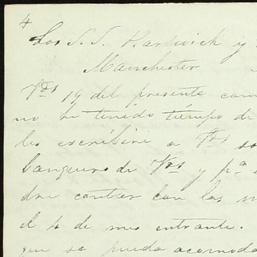 4
Los S. S. Hardwick y
Manchester
19 del presente
no he tenido tiempo de
les escribiré a Vds so
banquero de Vds y pa
dre contar con las
el p de mes entrante.
que se pueda acomoda